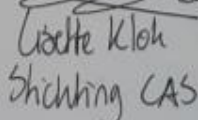 Lisette Klok
Stichting CAS